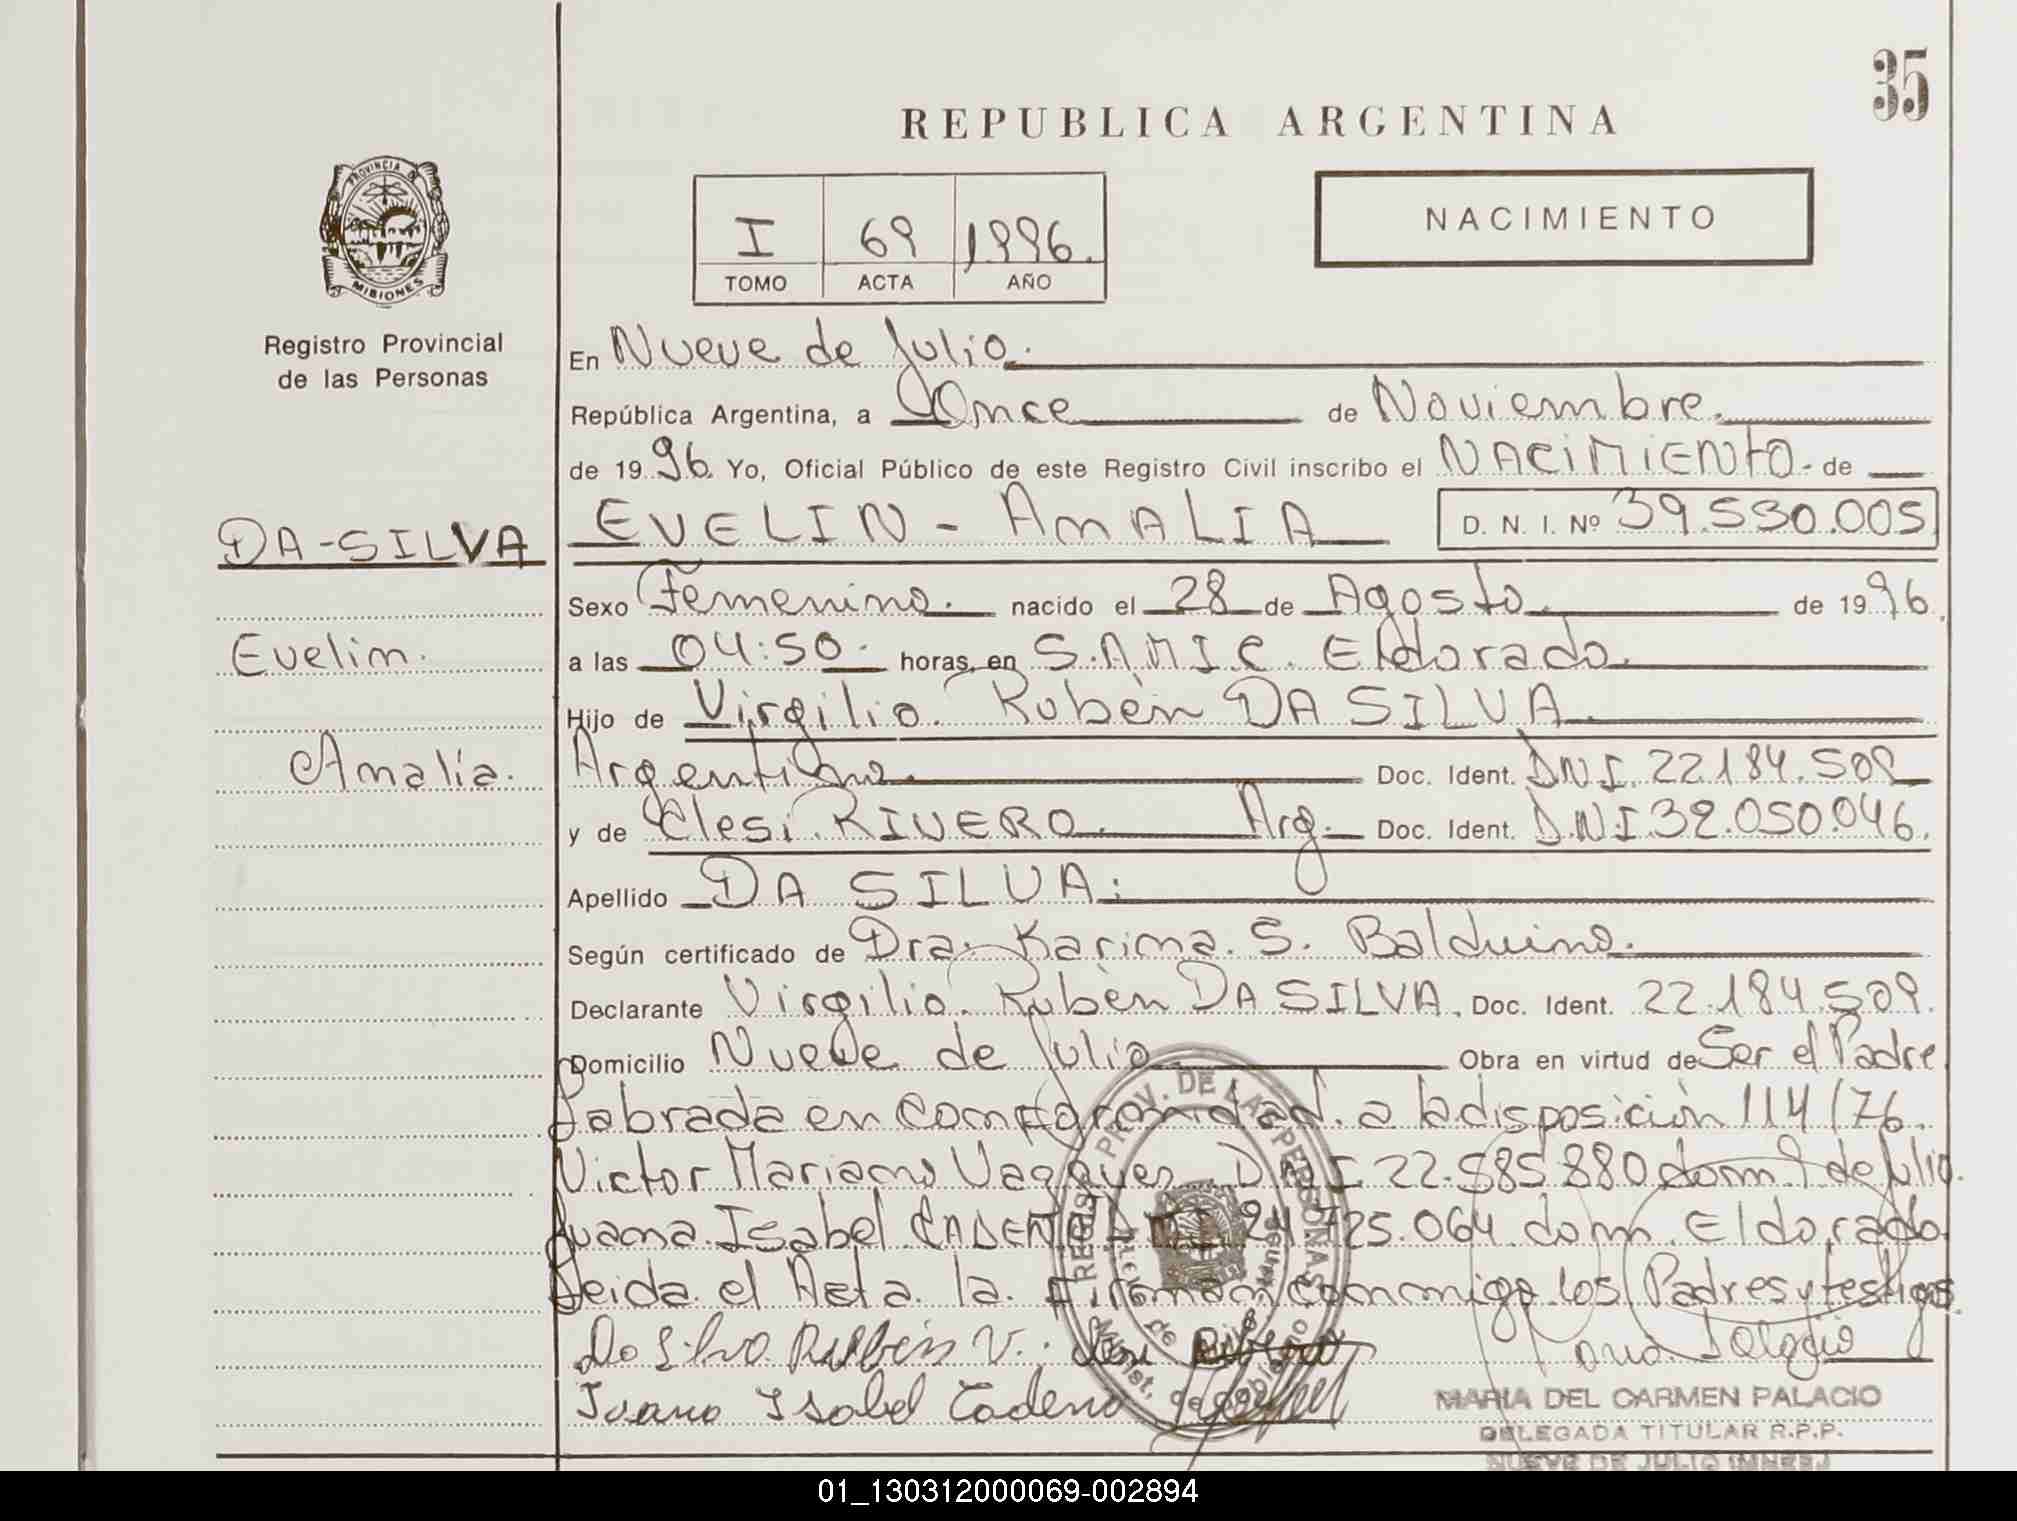 35
REPUBLICA ARGENTINA
PROVINCIA DE
MISIONES
Registro Provincial
de las Personas
I 69 1996.
TOMO ACTA AÑO
NACIMIENTO
En Nueve de Julio.
República Argentina, a Once de Noviembre.
de 1996. Yo, Oficial Público de este Registro Civil inscribo el NACIMIENTO. de
DA-SILVA EVELIN - AMALIA D. N. I. Nº 39.530.005
Sexo Femenino. nacido el 28 de Agosto. de 1996.
Evelin. a las 04:50. horas, en S.A.M.I.C. Eldorado.
Hijo de Virgilio. Rubén DA SILVA.
Amalia. Argentino. Doc. Ident. D.N.I. 22.184.509
y de Elesi. RIVERO. Arg. Doc. Ident. D.N.I 32.050.046.
Apellido DA SILVA:
Según certificado de Dra. Karina. S. Balduino.
Declarante Virgilio. Rubén DA SILVA. Doc. Ident. 22.184.509.
Domicilio Nueve de Julio Obra en virtud de Ser el Padre
Labrada en Conformidad. a la disposición 114/76.
Victor Mariano D.N.I 22.585.880 dom 9 de Julio.
Juana. Isabel. CADENA D.N.I 24.725.064. dom. Eldorado.
Leida. el Acta. la. Firman conmigo. los Padres y testigos.
Da Silva. Rubén V.
Juana Isabel Cadena
MARIA DEL CARMEN PALACIO
DELEGADA TITULAR R.P.P.
NUEVE DE JULIO (MNES)
01_130312000069-002894